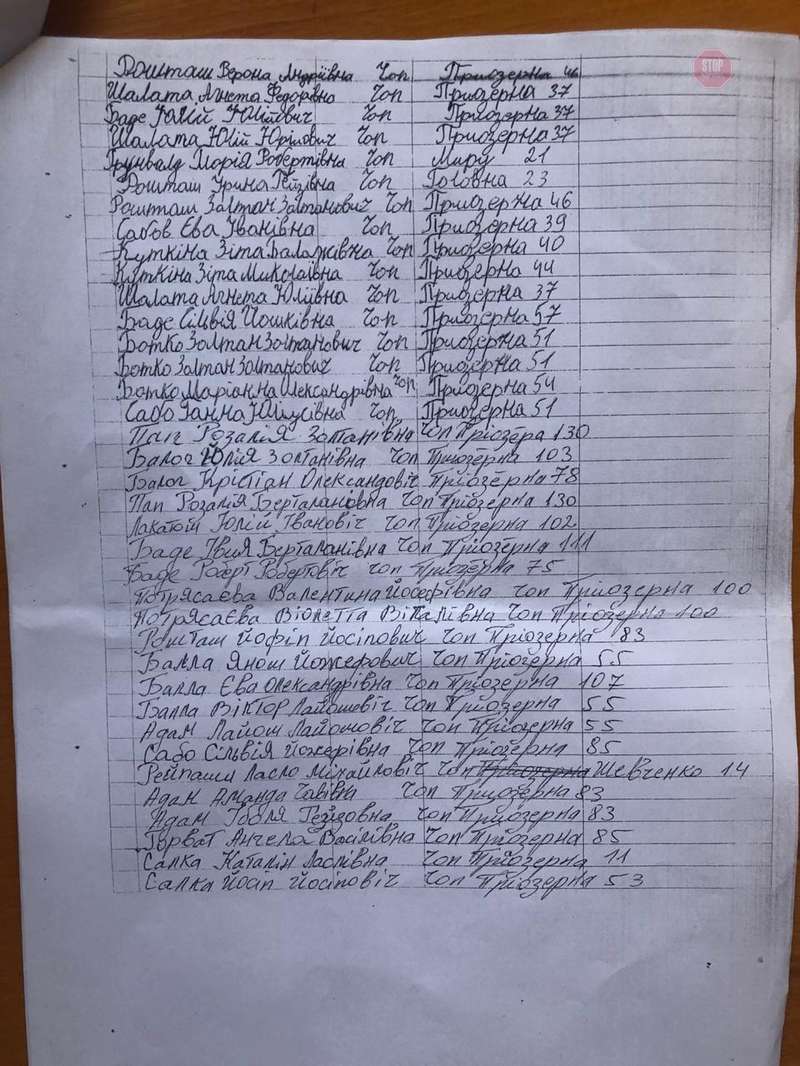 Рошташ Верона Андріївна Чоп Приозерна 46
STOP
Шалата Агнета Федорівна Чоп Приозерна 37
Баде Юлій Юлійович Чоп Приозерна 37
Шалата Юлій Юрійович Чоп Приозерна 37
Грунвалд Марія Робертівна Чоп Миру 21
Рошташ Ірина Гейзівна Чоп Головна 23
Рошташ Золтан Золтанович Чоп Приозерна 46
Сабов Єва Іванівна Чоп Приозерна 39
Куткіна Зіта Балажівна Чоп Приозерна 40
Куткіна Зіта Миколаївна Чоп Приозерна 44
Шалата Агнета Юліївна Чоп Приозерна 37
Баде Сільвія Йошківна Чоп Приозерна 57
Ботко Золтан Золтанович Чоп Приозерна 51
Ботко Золтан Золтанович Чоп Приозерна 51
Ботко Маріанна Олександрівна Чоп Приозерна 54
Сабо Ганна Юлиусівна Чоп Приозерна 51
Пап Розалія Золтанівна Чоп Пріозера 130
Балог Юлія Золтанівна Чоп Пріозерна 103
Балог Крістіан Олександовіч Пріозерна 78
Пап Розалія Берталанівна Чоп Пріозерна 130
Лакатош Юлій Івановіч Чоп Пріозерна 102
Баде Берталанівна Чоп Пріозерна 111
Баде Роберт Робертовіч Чоп Пріозерна 75
Потрясаєва Валентина Йосефівна Чоп Пріозерна 100
Потрясаєва Віолетта Віталівна Чоп Пріозерна 100
Рошташ Йофіп Йосіпович Чоп Пріозерна 83
Балла Янош Йожефович Чоп Пріозерна 55
Балла Єва Олександрівна Чоп Пріозерна 107
Балла Віктор Лайошовіч Чоп Пріозерна 55
Адам Лайош Лайошовіч Чоп Пріозерна 55
Сабо Сільвія Йожефівна Чоп Пріозерна 85
Ласло Міхайловіч Чоп Пріозерна Шевченко 14
Адам Аманда Чоп Пріозерна 83
Адам Гейзовна Чоп Пріозерна 83
Горват Ангела Васілівна Чоп Пріозерна 85
Салка Каталін Ласлівна Чоп Пріозерна 11
Салка Йосіп Йосіповіч Чоп Пріозерна 53